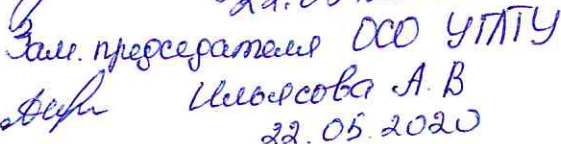 Зам. председателя ОСО УГЛТУ
Ильясова А.В
22.05.2020